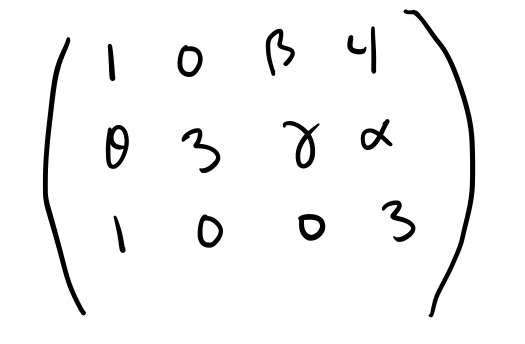 1 0 β 4
θ 3 γ α
1 0 0 3